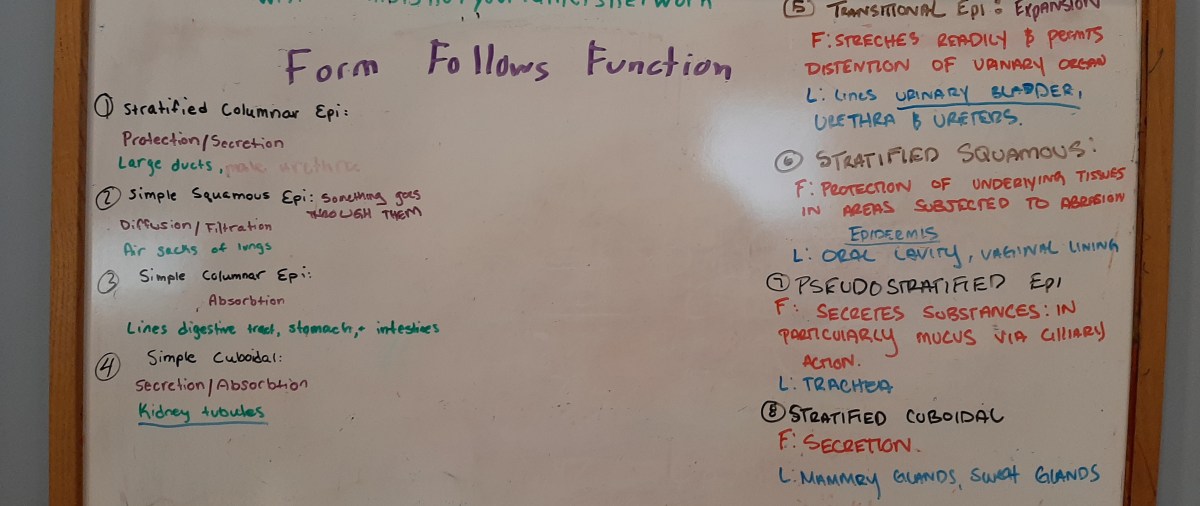 Form Follows Function
① Stratified Columnar Epi:
Protection/Secretion
Large ducts, male urethra
② Simple Squamous Epi: Something goes
THROUGH THEM
Diffusion/Filtration
Air sacks of lungs
③ Simple Columnar Epi:
Absorbtion
Lines digestive tract, stomach, + intestines
④ Simple Cuboidal:
Secretion/Absorbtion
Kidney tubules
⑤ TRANSITIONAL Epi: EXPANSION
F: STRECHES READILY & PERMITS
DISTENTION OF URINARY ORGAN
L: Lines URINARY BLADDER,
URETHRA & URETERS.
⑥ STRATIFIED SQUAMOUS:
F: PROTECTION OF UNDERLYING TISSUES
IN AREAS SUBJECTED TO ABRASION
EPIDERMIS
L: ORAL CAVITY, VAGINAL LINING
⑦ PSEUDOSTRATIFIED Epi
F: SECRETES SUBSTANCES: IN
PARTICULARLY MUCUS VIA CILLIARY
ACTION.
L: TRACHEA
⑧ STRATIFIED CUBOIDAL
F: SECRETION.
L: MAMMRY GLANDS, SWEAT GLANDS